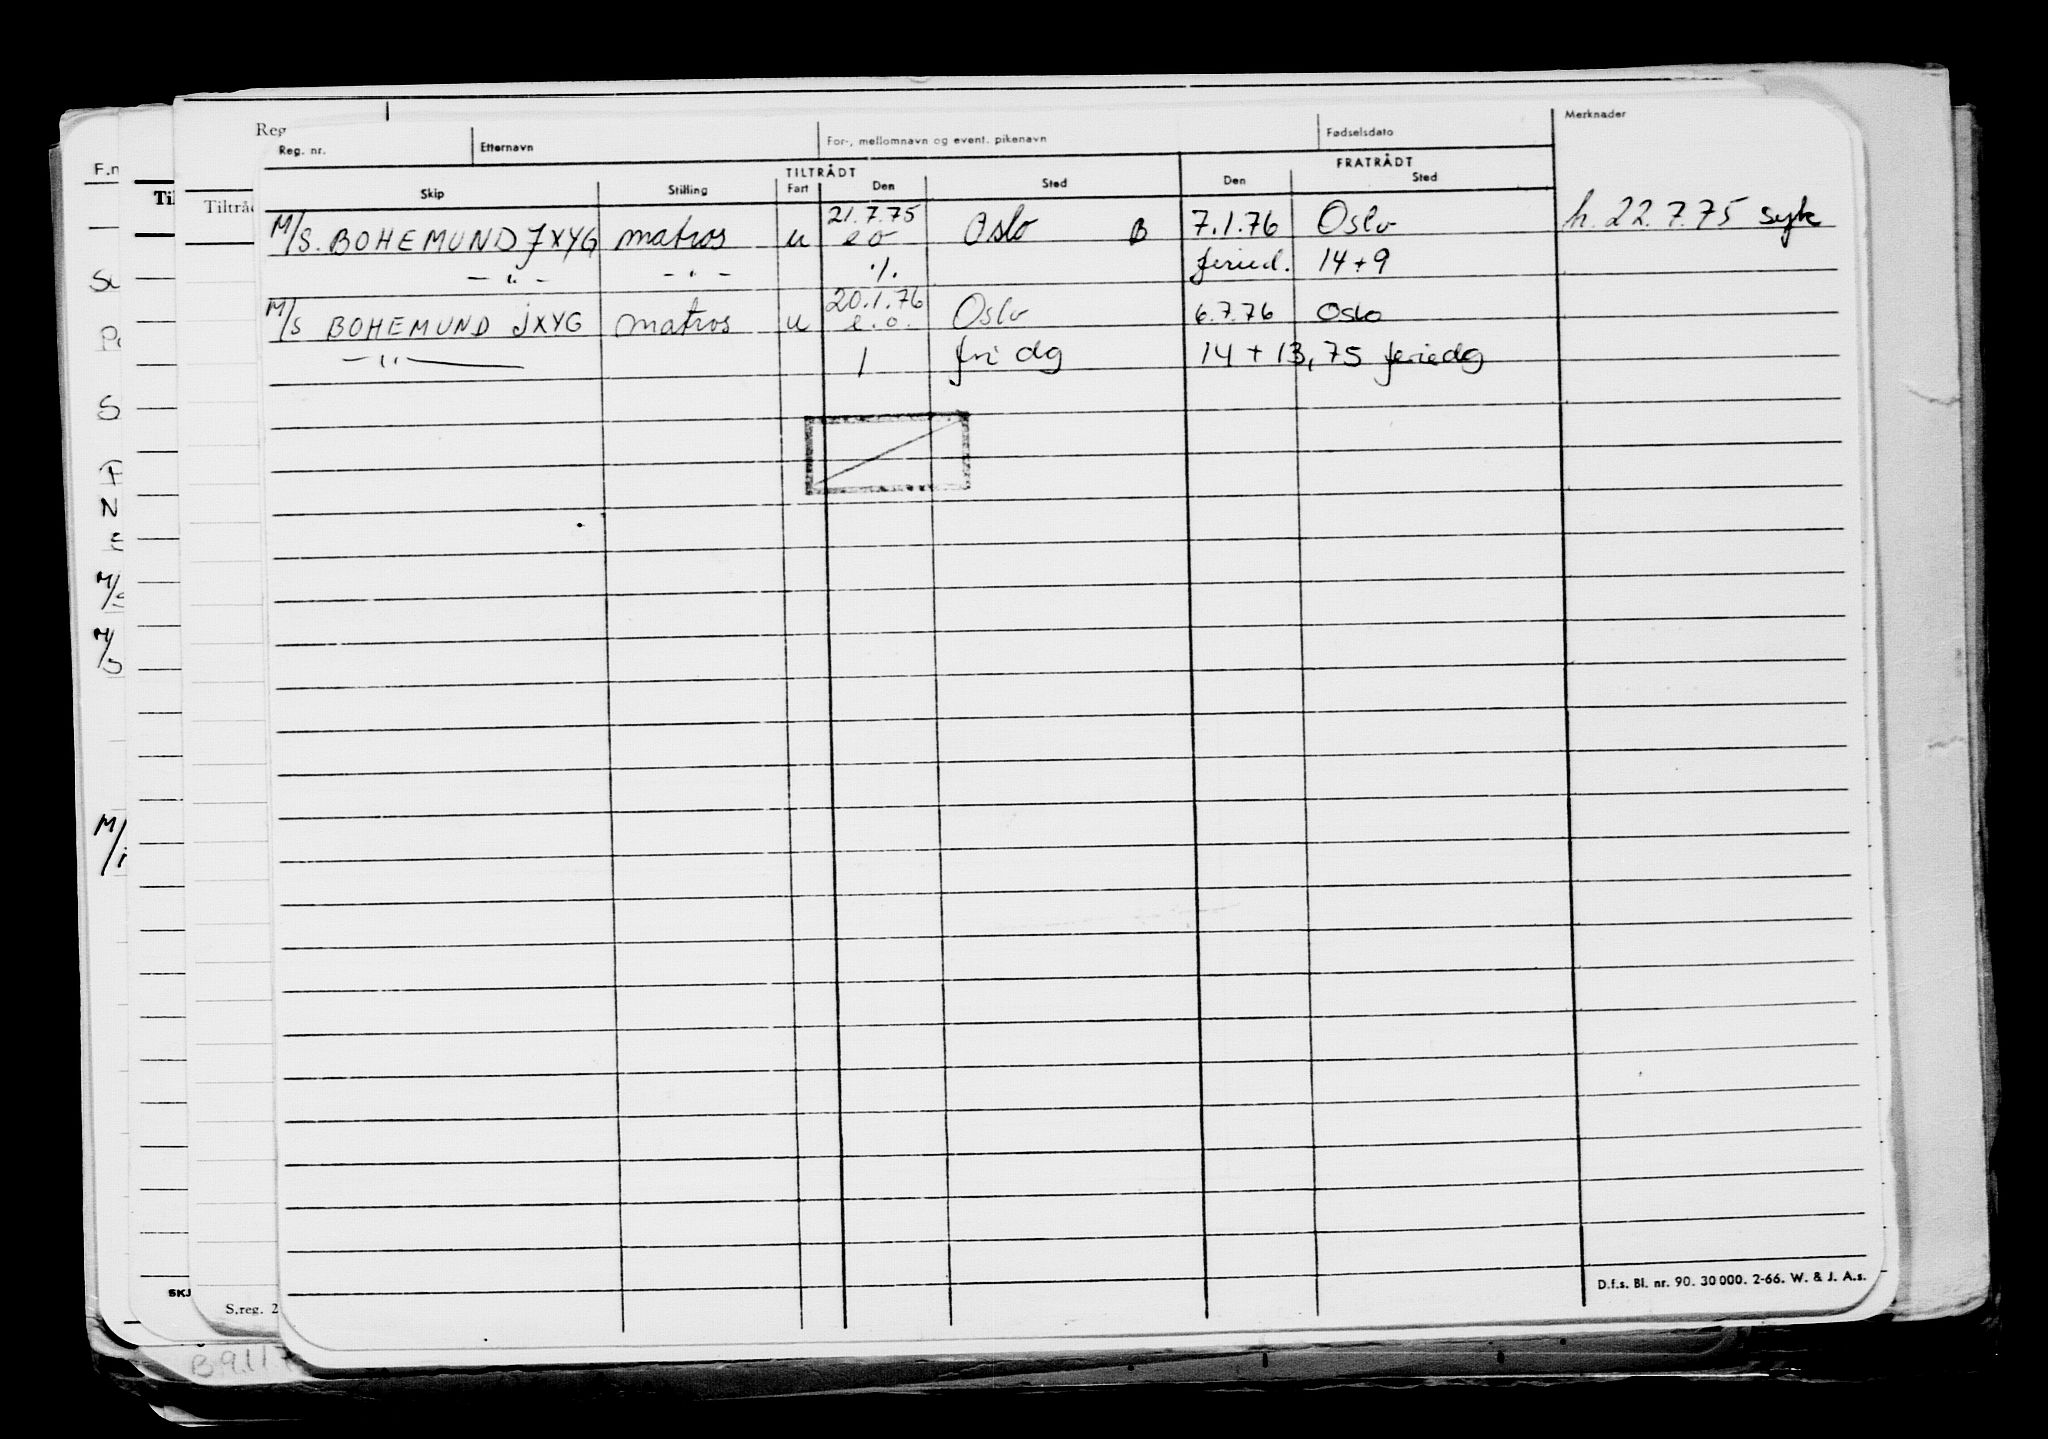 Reg
Reg. nr. Etternavn For-, mellomnavn og event. pikenavn Fødselsdato Merknader
TILTRÅDT FRATRÅDT
Skip Stilling Fart Den Sted Den Sted
M/S. BOHEMUND JXYG matros u 21.7.75 e o Oslo B 7.1.76 Oslo h. 22.7.75 syk
— " — - " - ./. feried. 14 + 9
M/S BOHEMUND JXYG matros u 20.1.76 e.o. Oslo 6.7.76 Oslo
— " — 1 fri dg 14 + 13,75 feriedg
D.f.s. Bl. nr. 90. 30 000. 2-66. W. & J. A.s.
F.n
Til
Tiltråd
S
N
M/S
M/S
M/
SKJ
S.reg. 2
B9117